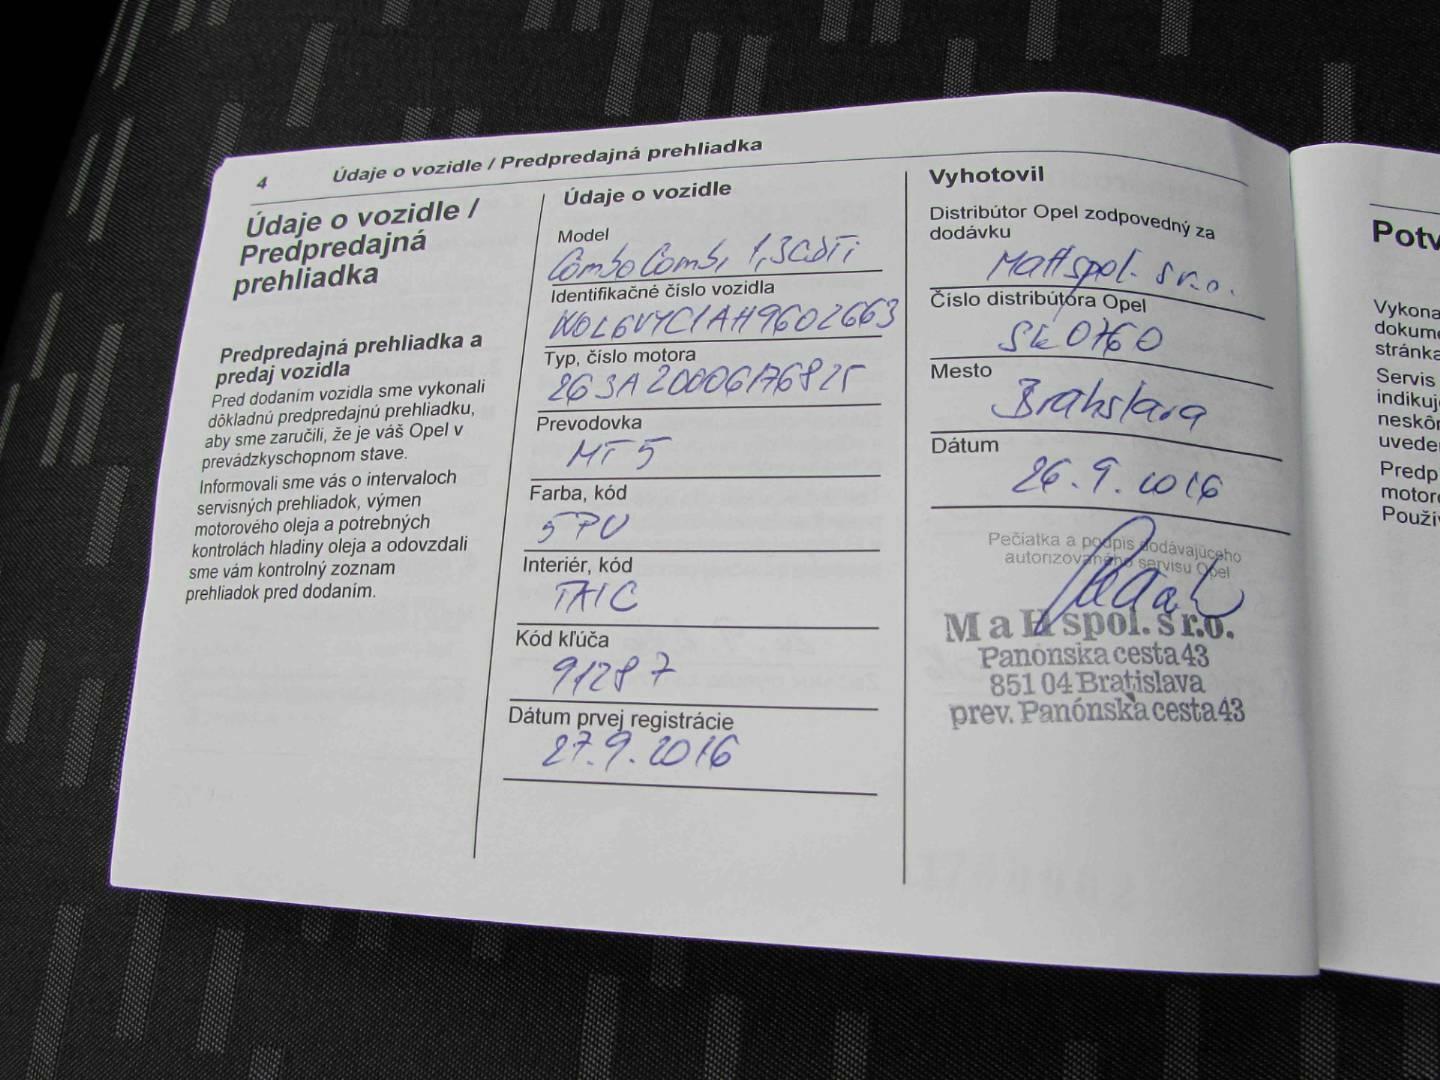 4 Údaje o vozidle / Predpredajná prehliadka
Údaje o vozidle /
Predpredajná
prehliadka
Predpredajná prehliadka a
predaj vozidla
Pred dodaním vozidla sme vykonali
dôkladnú predpredajnú prehliadku,
aby sme zaručili, že je váš Opel v
prevádzkyschopnom stave.
Informovali sme vás o intervaloch
servisných prehliadok, výmen
motorového oleja a potrebných
kontrolách hladiny oleja a odovzdali
sme vám kontrolný zoznam
prehliadok pred dodaním.
Údaje o vozidle
Model
Combo Combi 1,3CDTi
Identifikačné číslo vozidla
W0L6VYC1AH9602663
Typ, číslo motora
263A20006176825
Prevodovka
MT5
Farba, kód
5PU
Interiér, kód
TAIC
Kód kľúča
91287
Dátum prvej registrácie
27.9.2016
Vyhotovil
Distribútor Opel zodpovedný za
dodávku
MaH spol. s r.o.
Číslo distribútora Opel
SK0760
Mesto
Bratislava
Dátum
26.9.2016
Pečiatka a podpis dodávajúceho
autorizovaného servisu Opel
M a H spol. s r.o.
Panónska cesta 43
851 04 Bratislava
prev. Panónska cesta 43
Potv
Vykona
dokume
stránka
Servis
indikuj
neskôr
uveden
Predp
motoro
Použív